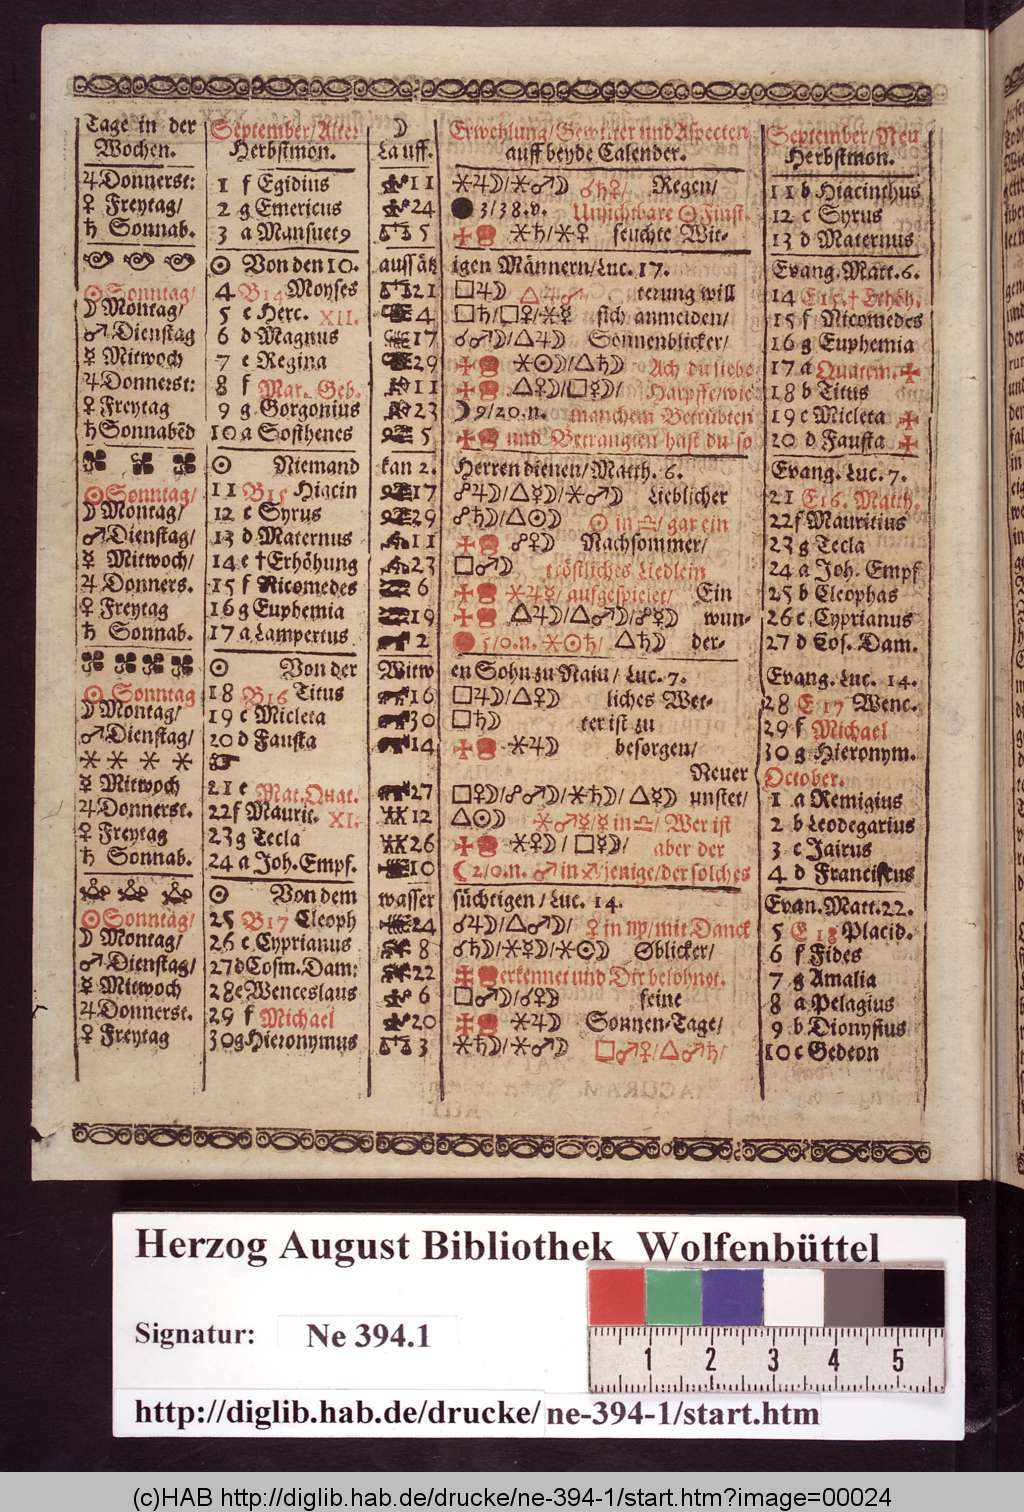 Tage in der September/Alter ☽ Erwehlung/Gewitter und Aspecten September/Neu
Wochen. Herbstmon. Lauff. auff beyde Calender. Herbstmon.
♃Donnerst: 1 f Egidius 11 ⚹♃☽/⚹♂☽ ☌♄♀/ Regen/ 11 b Hiacinthus
♀ Freytag/ 2 g Emericus 24 ● 3/38.v. Unsichtbare ☉ Finst. 12 c Syrus
♄ Sonnab. 3 a Mansuet9 5 ⚹♄/⚹♀ feuchte Wit- 13 d Maternus
☉ Von den 10. aussätz igen Männern/Luc. 17. Evang. Matt. 6.
☉Sonntag/ 4 B14 Moyses 21 □♃☽ △♃♂ terung will 14 E15.† Erhöh.
☽ Montag/ 5 c Herc. XII. 4 □♄/□♀/⚹☿ sich anmelden/ 15 f Nicomedes
♂ Dienstag 6 d Magnus 17 ☌♂☽/△♃☽ Sonnenblicker/ 16 g Euphemia
☿ Mitwoch 7 e Regina 29 ⚹☉☽/△♄☽ Ach du liebe 17 a Quatem.
♃Donnerst: 8 f Mar. Geb. 11 △♀☽/□☿☽/ Harpffe/wie 18 b Titus
♀ Freytag 9 g Gorgonius 23 ☽9/20.n. manchem Betrübten 19 c Micleta
♄Sonnabēd 10 a Sosthenes 5 und Betrangten hast du so 20 d Fausta
☉ Niemand kan 2. Herren dienen/Matth. 6. Evang. Luc. 7.
☉Sonntag/ 11 B15 Hiacin 17 ☍♃☽/△☿☽/⚹♂☽ Lieblicher 21 E16. Matth.
☽ Montag/ 12 c Syrus 29 ☍♄☽/△☉☽ ☉ in ♎/ gar ein 22 f Mauritius
♂ Dienstag/ 13 d Maternus 11 ☍♀☽ Nachsommer/ 23 g Tecla
☿ Mitwoch/ 14 e †Erhöhung 23 □♂☽ tröstliches Liedlein 24 a Joh. Empf
♃ Donners. 15 f Nicomedes 6 ⚹♃☿/ aufgespielet/ Ein 25 b Cleophas
♀ Freytag 16 g Euphemia 19 △♃☽/△♂☽/☍☿☽ wun- 26 c Cyprianus
♄ Sonnab. 17 a Lampertus 2 5/0.n. ⚹☉♄/ △♄☽ der- 27 d Cos. Dam.
☉ Von der Witw en Sohn zu Nain/ Luc. 7. Evang. Luc. 14.
☉ Sonntag 18 B16 Titus 16 □♃☽/△♀☽ liches Wet- 28 E 17 Wenc.
☽ Montag/ 19 c Micleta 30 □♄☽ ter ist zu 29 f Michael
♂ Dienstag/ 20 d Fausta 14 ⚹♃☽ besorgen/ 30 g Hieronym.
Neuer October.
☿ Mitwoch 21 e Mat. Quat. 27 □♀☽/☍♂☽/⚹♄☽/ △☿☽ unstet/ 1 a Remigius
♃Donnerst. 22 f Maurit. XI. 12 △☉☽ ⚹♂☿/☿ in ♎/ Wer ist 2 b Leodegarius
♀ Freytag 23 g Tecla 26 ⚹♀☽/ □☿☽/ aber der 3 c Jairus
♄ Sonnab. 24 a Joh. Empf. 10 ☾2/0.n. ♂ in ♐ jenige/der solches 4 d Franciscus
☉ Von dem wasser süchtigen/ Luc. 14. Evan. Matt. 22.
☉Sonntag/ 25 B17 Cleoph 24 ☌♃☽/△♂☽/ ♀ in ♍/mit Danck 5 E 18 Placid.
☽ Montag/ 26 c Cyprianus 8 ☌♄☽/⚹☿☽/⚹☉☽ ☉blicker/ 6 f Fides
♂ Dienstag/ 27 d Cosm. Dam: 22 erkennet und Dir belohnet. 7 g Amalia
☿ Mitwoch 28 e Wenceslaus 6 □♂☽/☌♀☽ feine 8 a Pelagius
♃ Donnerst. 29 f Michael 20 ⚹♃☽ Sonnen-Tage/ 9 b Dionysius
♀ Freytag 30 g Hieronymus 3 ⚹♄☽/⚹♂☽ □♂♀/△♂♄/ 10 c Gedeon
Herzog August Bibliothek Wolfenbüttel
Signatur: Ne 394.1
1 2 3 4 5
http://diglib.hab.de/drucke/ne-394-1/start.htm
(c)HAB http://diglib.hab.de/drucke/ne-394-1/start.htm?image=00024